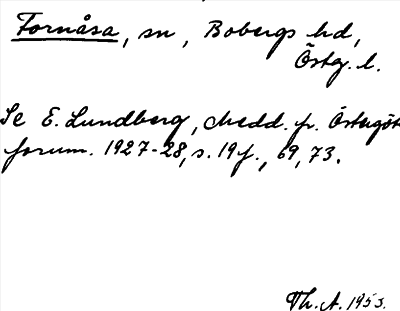 Fornåsa, sn, Bobergs hd,
Östg. l.
Se E. Lundberg, Medd. fr. Östergöt
fornm. 1927-28, s. 19 f., 69, 73.
Th. A. 1953.